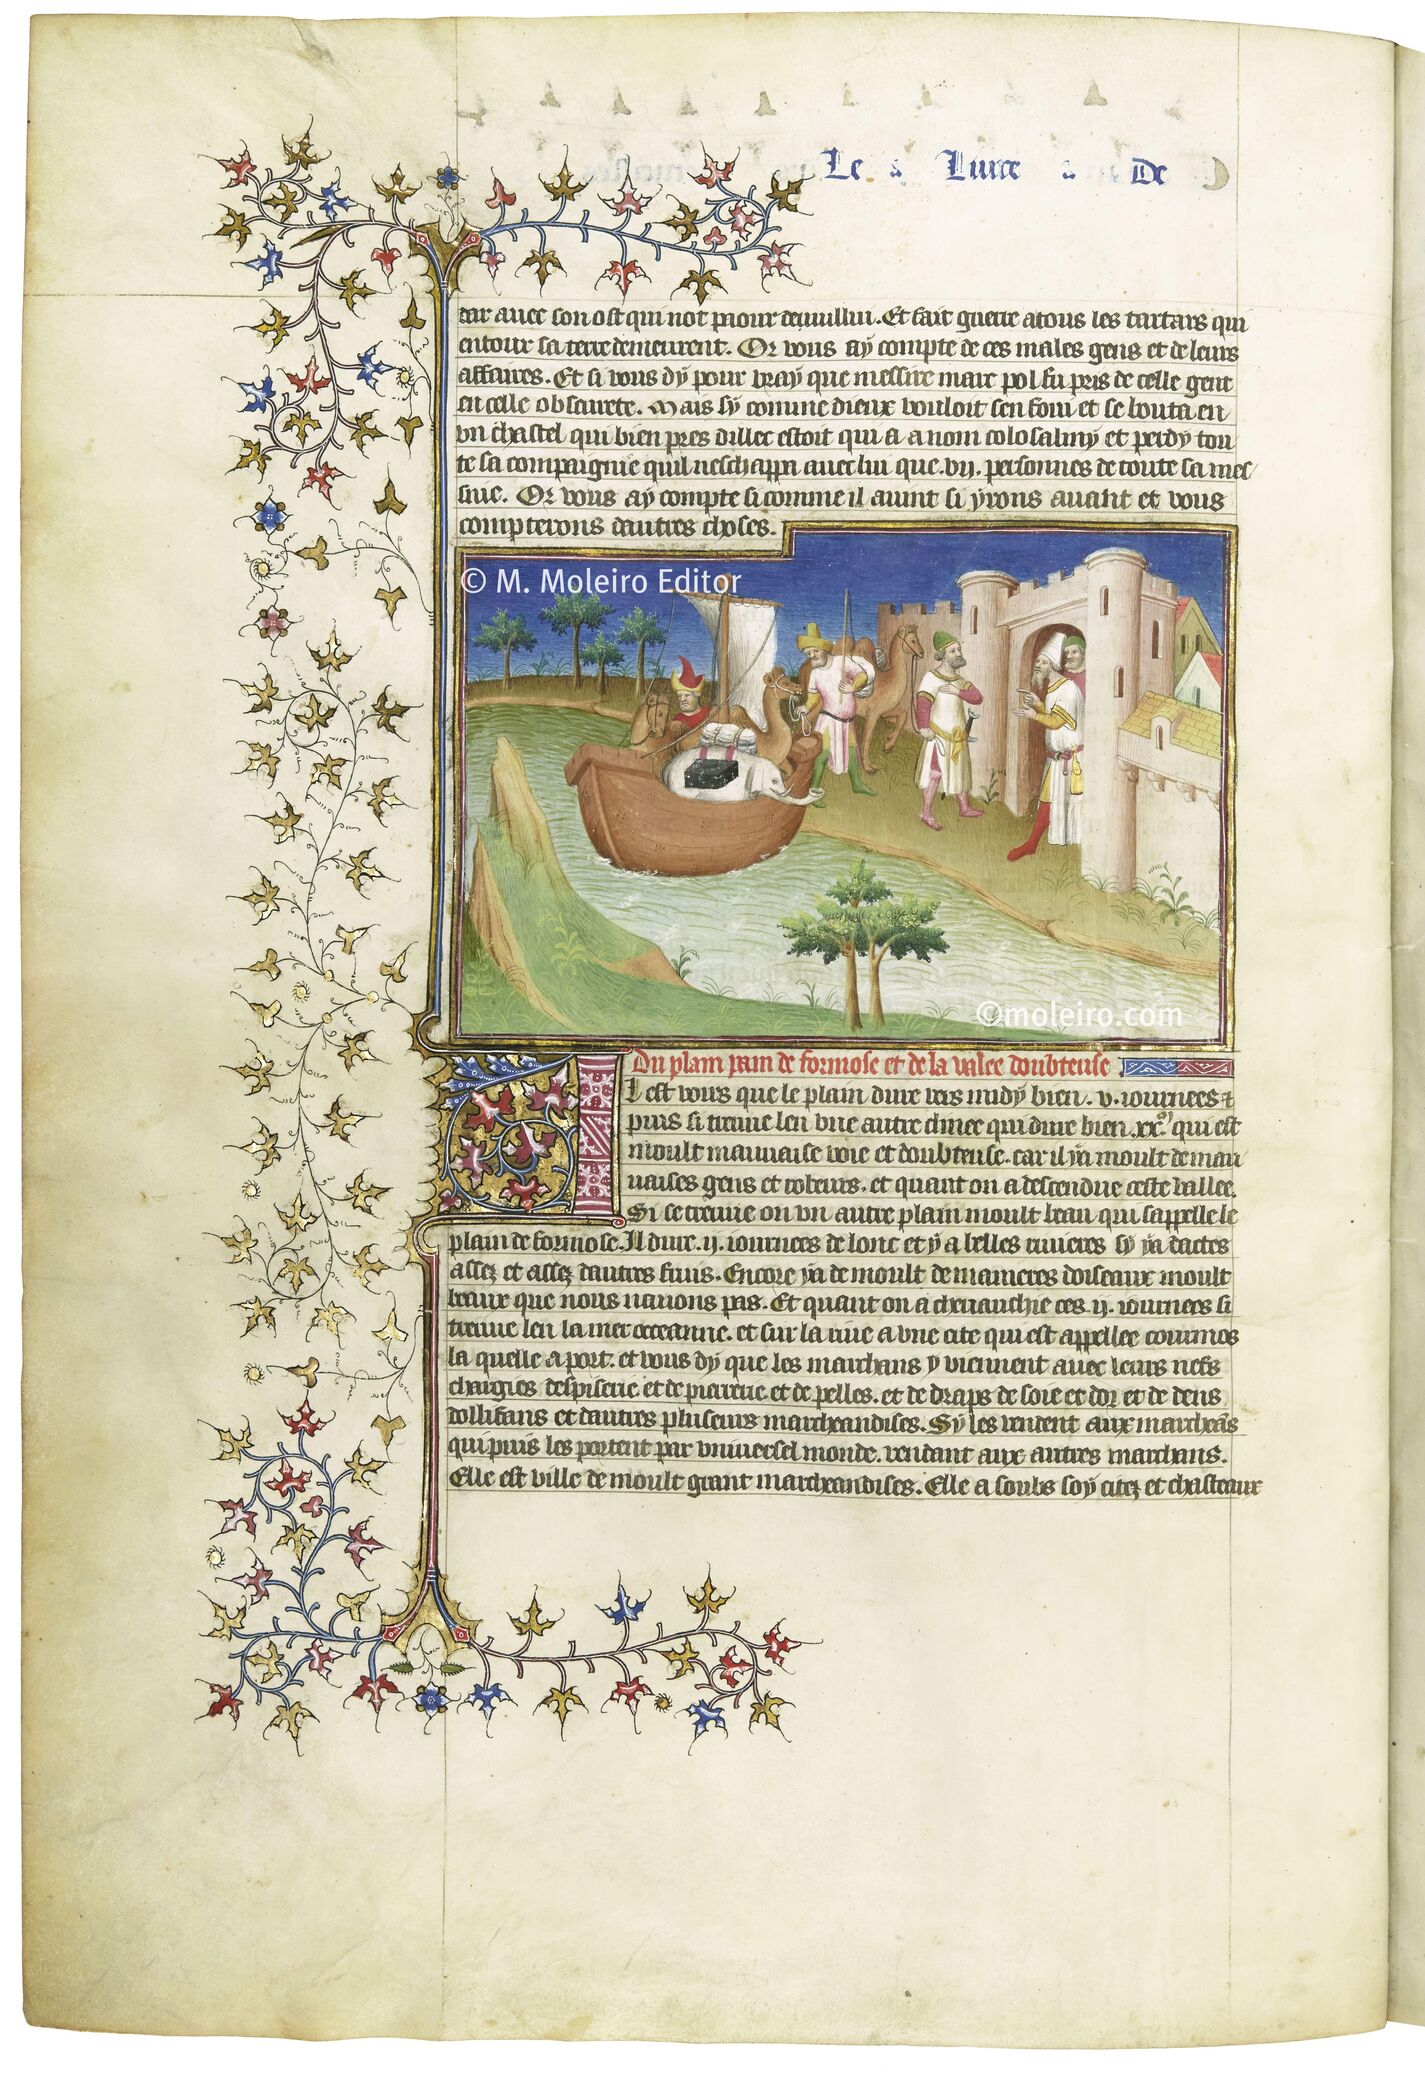 Le Livre De
dar avec son ost qui not paour de nullui. Et fait guerre atous les tartars qui
entour sa terre demeurent. Or vous ay compte de ces males gens et de leurs
affaires. Et si vous dy pour vray que messire marc pol fu pris de celle gent
en celle obscurete. Mais sy comme dieux vouloit sen foui et se bouta en
un chastel qui bien pres dillec estoit qui a a nom colosalmy et perdy tou
te sa compaignie quil neschappa avec lui que .vij. personnes de toute sa mes
nie. Or vous ay compte si comme il avint si yrons avant et vous
compterons dautres choses.
© M. Moleiro Editor
©moleiro.com
Du plain de formose et de la valee doubteuse
Il est voirs que le plain dure vers midy bien .v. iournees et
puis si treuve len une autre chinee qui dure bien .xx. qui est
moult mauvaise voie et doubteuse. car il ya moult de mau
vaises gens et robeurs. et quant on a descendue ceste vallee.
Si se treuve on un autre plain moult beau qui sappelle le
plain de formose. Il dure .ij. iournees de lonc et y a belles rivieres sy ya dactes
assez et assez dautres fruis. Encore ya de moult de manieres doiseaux moult
beaux que nous navons pas. Et quant on a chevauchie ces .ij. iournees si
treuve len la mer occeanne. et sur la rive a une cite qui est appellee cormos
la quelle a port. et vous dy que les marchans y viennent avec leurs nefs
chargies despiserie et de pierrerie et de pelles. et de draps de soie et dor et de dens
dollifans et dautres pluseurs marcheandises. Sy les vendent aux marcheans
qui puis les portent par universel monde. vendant aux autres marchans.
Elle est ville de moult grant marcheandises. Elle a soubs soy citez et chasteaux